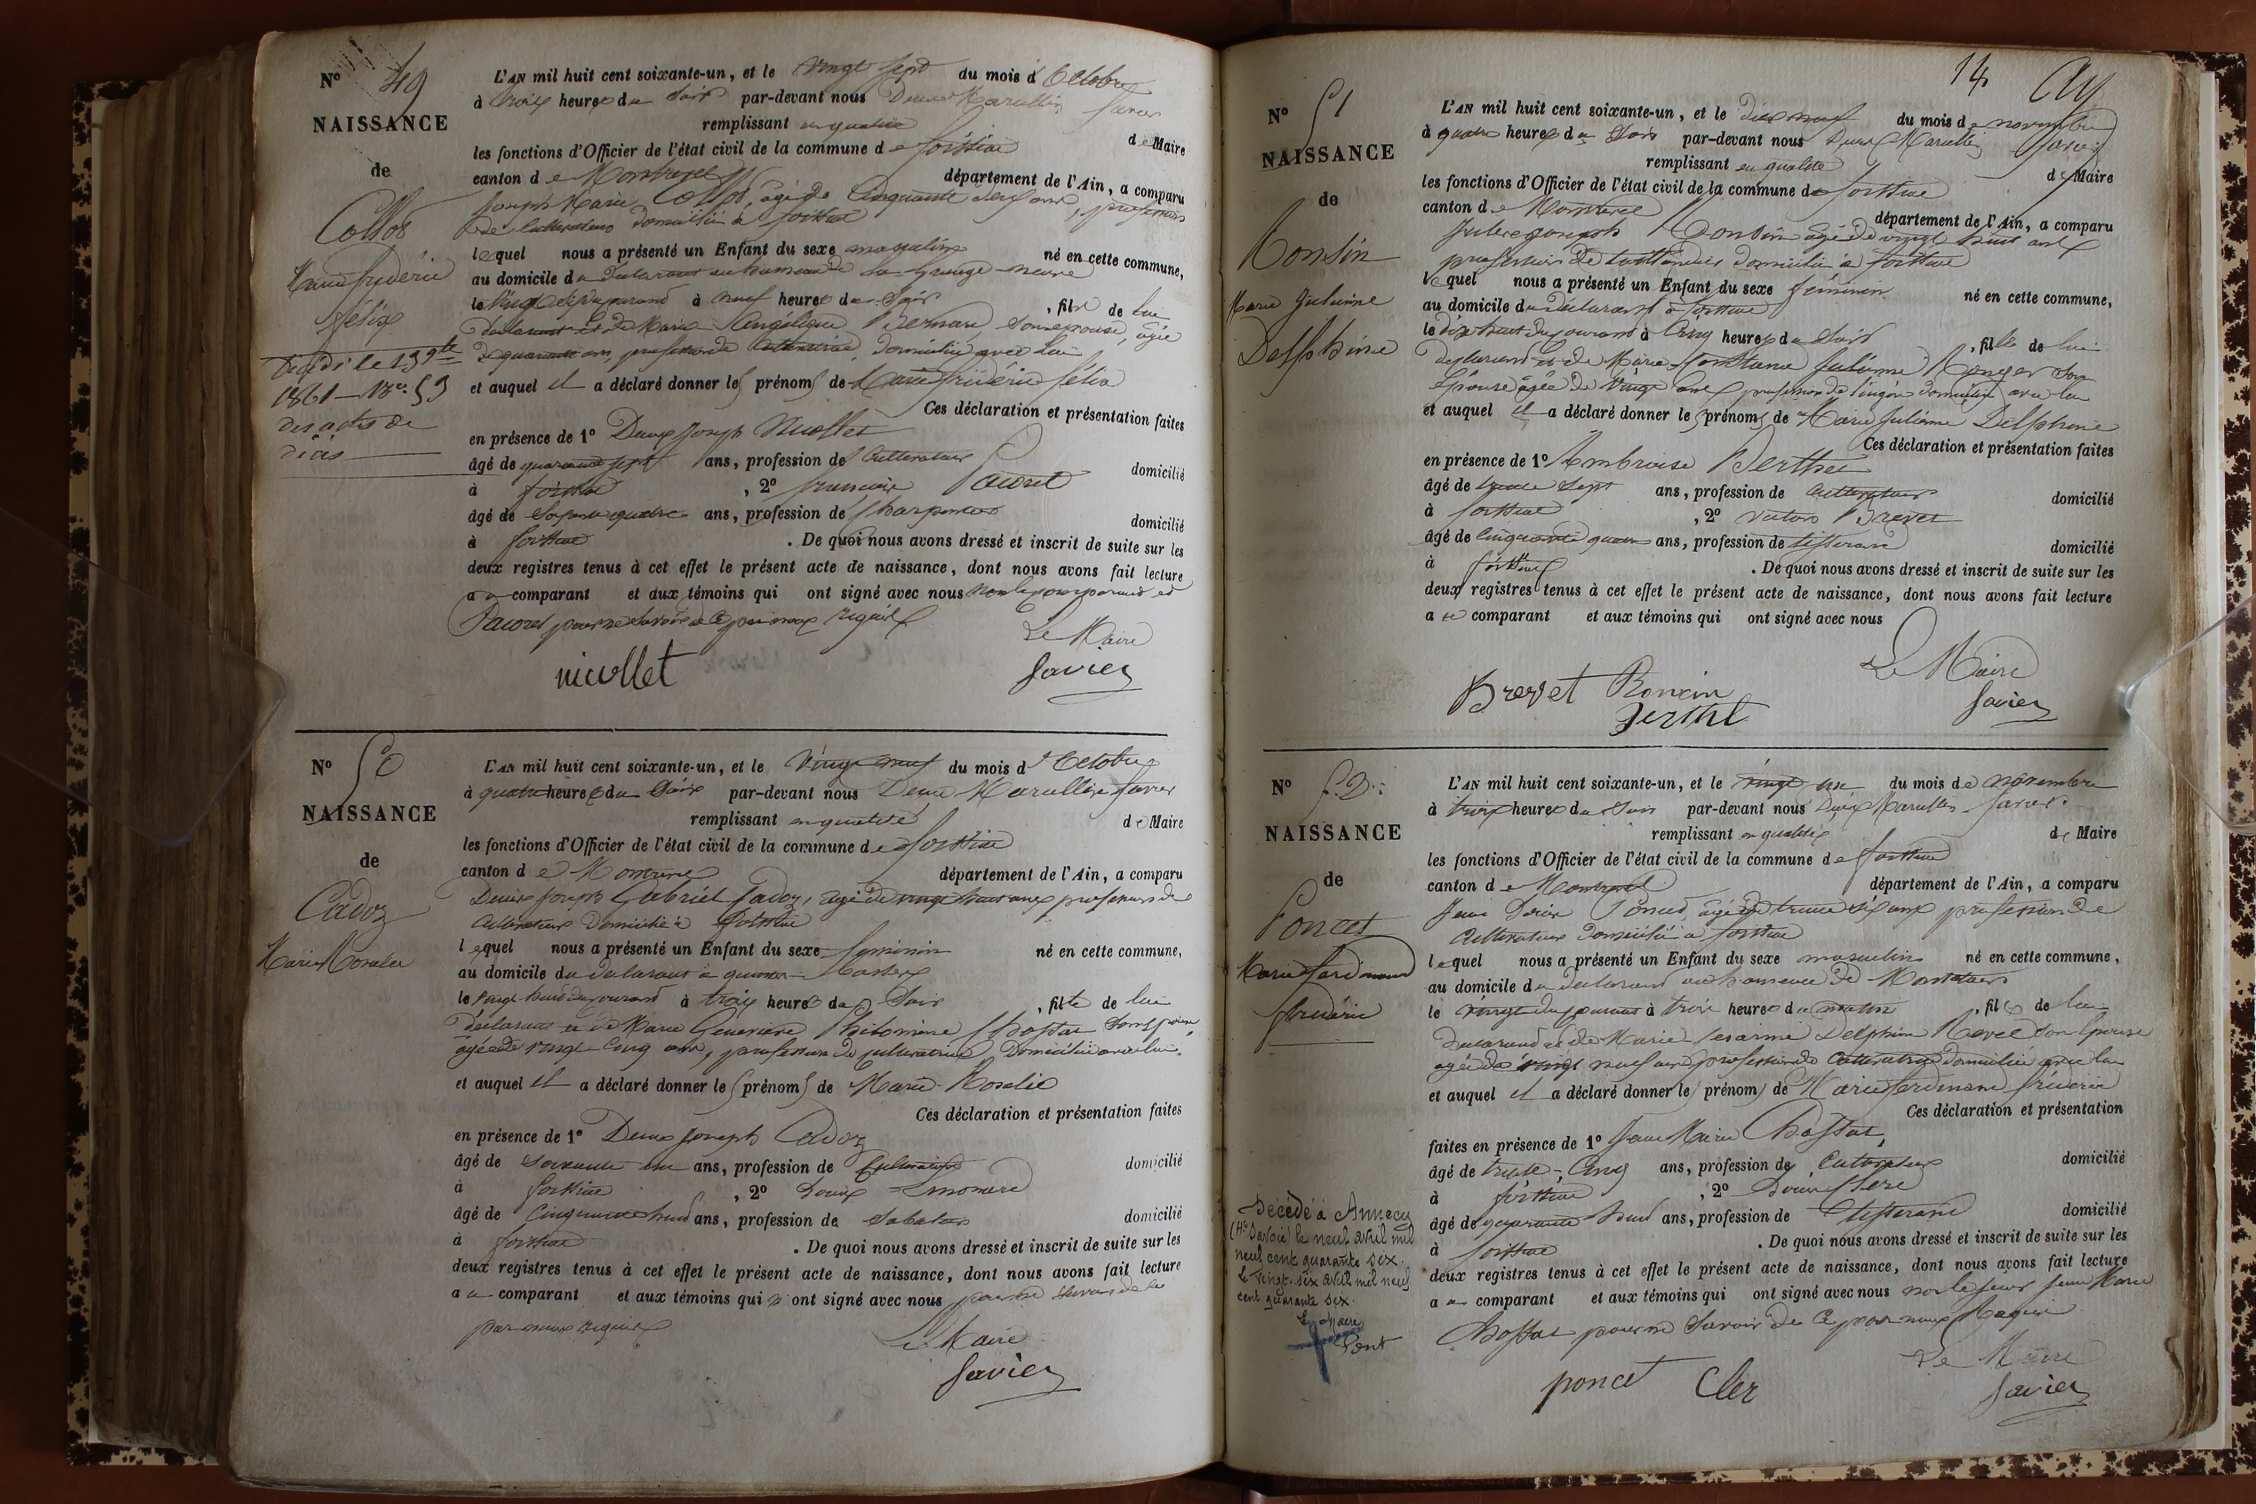 Nº 49
NAISSANCE
de
Collod
Marie frédéric
félix
décédé le 13 9bre
1861 - Nº 53
des actes de
décès
L'AN mil huit cent soixante-un, et le vingt sept du mois d'Octobre
à trois heures du soir par-devant nous Denis Marcellin Favier
remplissant en qualité de Maire
les fonctions d'Officier de l'état civil de la commune de
canton de Montrevel département de l'Ain, a comparu
Joseph Marie Collod, âgé de Cinquante ans, profession
de Cultivateur domicilié à
lequel nous a présenté un Enfant du sexe masculin né en cette commune,
au domicile du déclarant au hameau de la Grange neuve
le vingt sept du courant à neuf heures du soir, fils de lui
déclarant et de Marie Angélique Bernard son épouse, âgée
de quarante ans, profession de Cultivatrice, domiciliée avec lui
et auquel il a déclaré donner les prénoms de Marie frédéric félix
Ces déclaration et présentation faites
en présence de 1º Denis Joseph Nicollet
âgé de quarante sept ans, profession de Cultivateur domicilié
à , 2º françois Pacoret
âgé de soixante quatre ans, profession de Charpentier domicilié
à . De quoi nous avons dressé et inscrit de suite sur les
deux registres tenus à cet effet le présent acte de naissance, dont nous avons fait lecture
au comparant et aux témoins qui ont signé avec nous non le comparant et
Pacoret pour ne savoir de ce par nous requis
Le Maire
nicollet Favier
Nº 50
NAISSANCE
de
Cadoz
Marie Rosalie
L'AN mil huit cent soixante-un, et le vingt neuf du mois d'Octobre
à quatre heures du soir par-devant nous Denis Marcellin Favier
remplissant en qualité de Maire
les fonctions d'Officier de l'état civil de la commune de
canton de Montrevel département de l'Ain, a comparu
Denis Joseph Gabriel Cadoz, âgé de vingt huit ans profession de
Cultivateur domicilié à
lequel nous a présenté un Enfant du sexe féminin né en cette commune,
au domicile du déclarant
le vingt huit du courant à trois heures du soir, fille de lui
déclarant et de Marie Geneviève Philomène Chossat son épouse,
âgée de vingt cinq ans, profession de cultivatrice, domiciliée avec lui.
et auquel il a déclaré donner les prénoms de Marie Rosalie
Ces déclaration et présentation faites
en présence de 1º Denis Joseph Cadoz
âgé de soixante un ans, profession de Cultivateur domicilié
à , 2º Denis
âgé de Cinquante huit ans, profession de Sabotier domicilié
à . De quoi nous avons dressé et inscrit de suite sur les
deux registres tenus à cet effet le présent acte de naissance, dont nous avons fait lecture
au comparant et aux témoins qui n'ont signé avec nous pour ne savoir de ce
par nous requis
Le Maire
Favier
14
Nº 51
NAISSANCE
de
Ronsin
Marie Julienne
Delphine
L'AN mil huit cent soixante-un, et le dix neuf du mois de novembre
à quatre heures du soir par-devant nous Denis Marcellin Favier
remplissant en qualité de Maire
les fonctions d'Officier de l'état civil de la commune de
canton de Montrevel département de l'Ain, a comparu
Jules Joseph Ronsin âgé de vingt huit ans
profession de domicilié à
lequel nous a présenté un Enfant du sexe féminin né en cette commune,
au domicile du déclarant à
le dix huit du courant à Cinq heures du soir, fille de lui
déclarant et de Marie Julienne son
épouse âgée de vingt ans profession de lingère domiciliée avec lui
et auquel il a déclaré donner les prénoms de Marie Julienne Delphine
Ces déclaration et présentation faites
en présence de 1º Ambroise Berthet
âgé de trente sept ans, profession de Cultivateur domicilié
à , 2º Brevet
âgé de Cinquante quatre ans, profession de tisserand domicilié
à . De quoi nous avons dressé et inscrit de suite sur les
deux registres tenus à cet effet le présent acte de naissance, dont nous avons fait lecture
au comparant et aux témoins qui ont signé avec nous
Le Maire
Brevet Roncin Favier
Nº 52
NAISSANCE
de
Poncet
Marie ferdinand
frédéric
Décédé à Annecy
(Hte Savoie) le neuf avril mil
neuf cent quarante six.
Le vingt-six avril mil neuf
cent quarante six.
Le Maire
L'AN mil huit cent soixante-un, et le vingt un du mois de novembre
à trois heures du soir par-devant nous Denis Marcellin Favier
remplissant en qualité de Maire
les fonctions d'Officier de l'état civil de la commune de
canton de Montrevel département de l'Ain, a comparu
Jean Denis Poncet, âgé de trente six ans profession de
Cultivateur domicilié à
lequel nous a présenté un Enfant du sexe masculin né en cette commune,
au domicile du déclarant au hameau de
le vingt du courant à trois heures du matin, fils de lui
déclarant et de Marie Césarine Delphine Revel son épouse
âgée de vingt neuf ans profession de Cultivatrice domiciliée avec lui
et auquel il a déclaré donner les prénoms de Marie ferdinand frédéric
Ces déclaration et présentation
faites en présence de 1º Jean Marie Chossat,
âgé de trente-Cinq ans, profession de Cultivateur domicilié
à , 2º Denis Clere
âgé de quarante huit ans, profession de tisserand domicilié
à . De quoi nous avons dressé et inscrit de suite sur les
deux registres tenus à cet effet le présent acte de naissance, dont nous avons fait lecture
au comparant et aux témoins qui ont signé avec nous non le sieur Jean Marie
Chossat pour ne savoir de ce par nous Requis
Le Maire
poncet Cler Favier